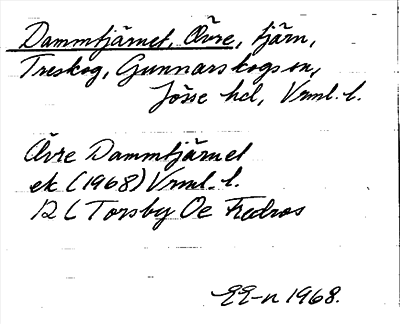 Dammtjärnet, Övre, tjärn,
Treskog, Gunnarskogs sn,
Jösse hd, Vrml. l.
Övre Dammtjärnet
ek (1968) Vrml. l.
12 C Torsby Öe Fredros
EE-n 1968.